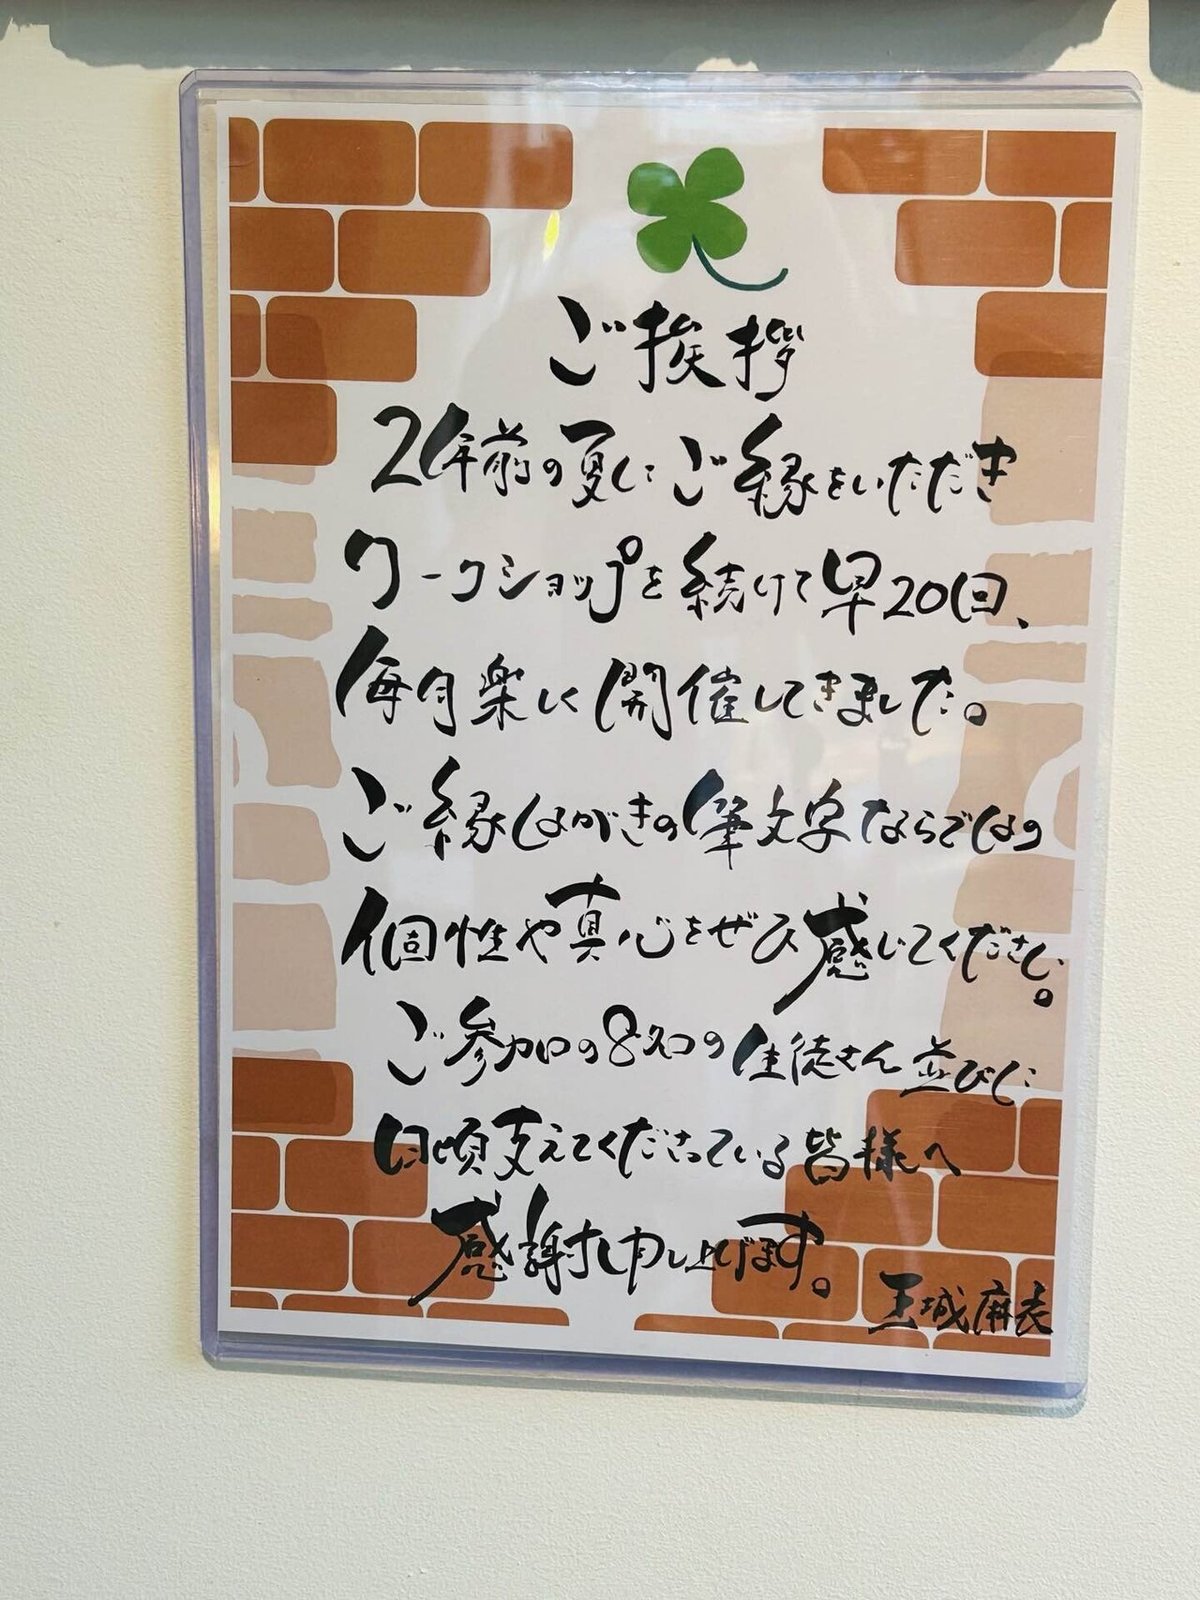 ご挨拶
2年前の夏にご縁をいただき
ワークショップを続けて早20回、
毎月楽しく開催してきました。
ご縁はがきの筆文字ならではの
個性や真心をぜひ感じてください。
ご参加の8名の生徒さん並びに
日頃支えてくださっている皆様へ
感謝申し上げます。
玉城麻衣